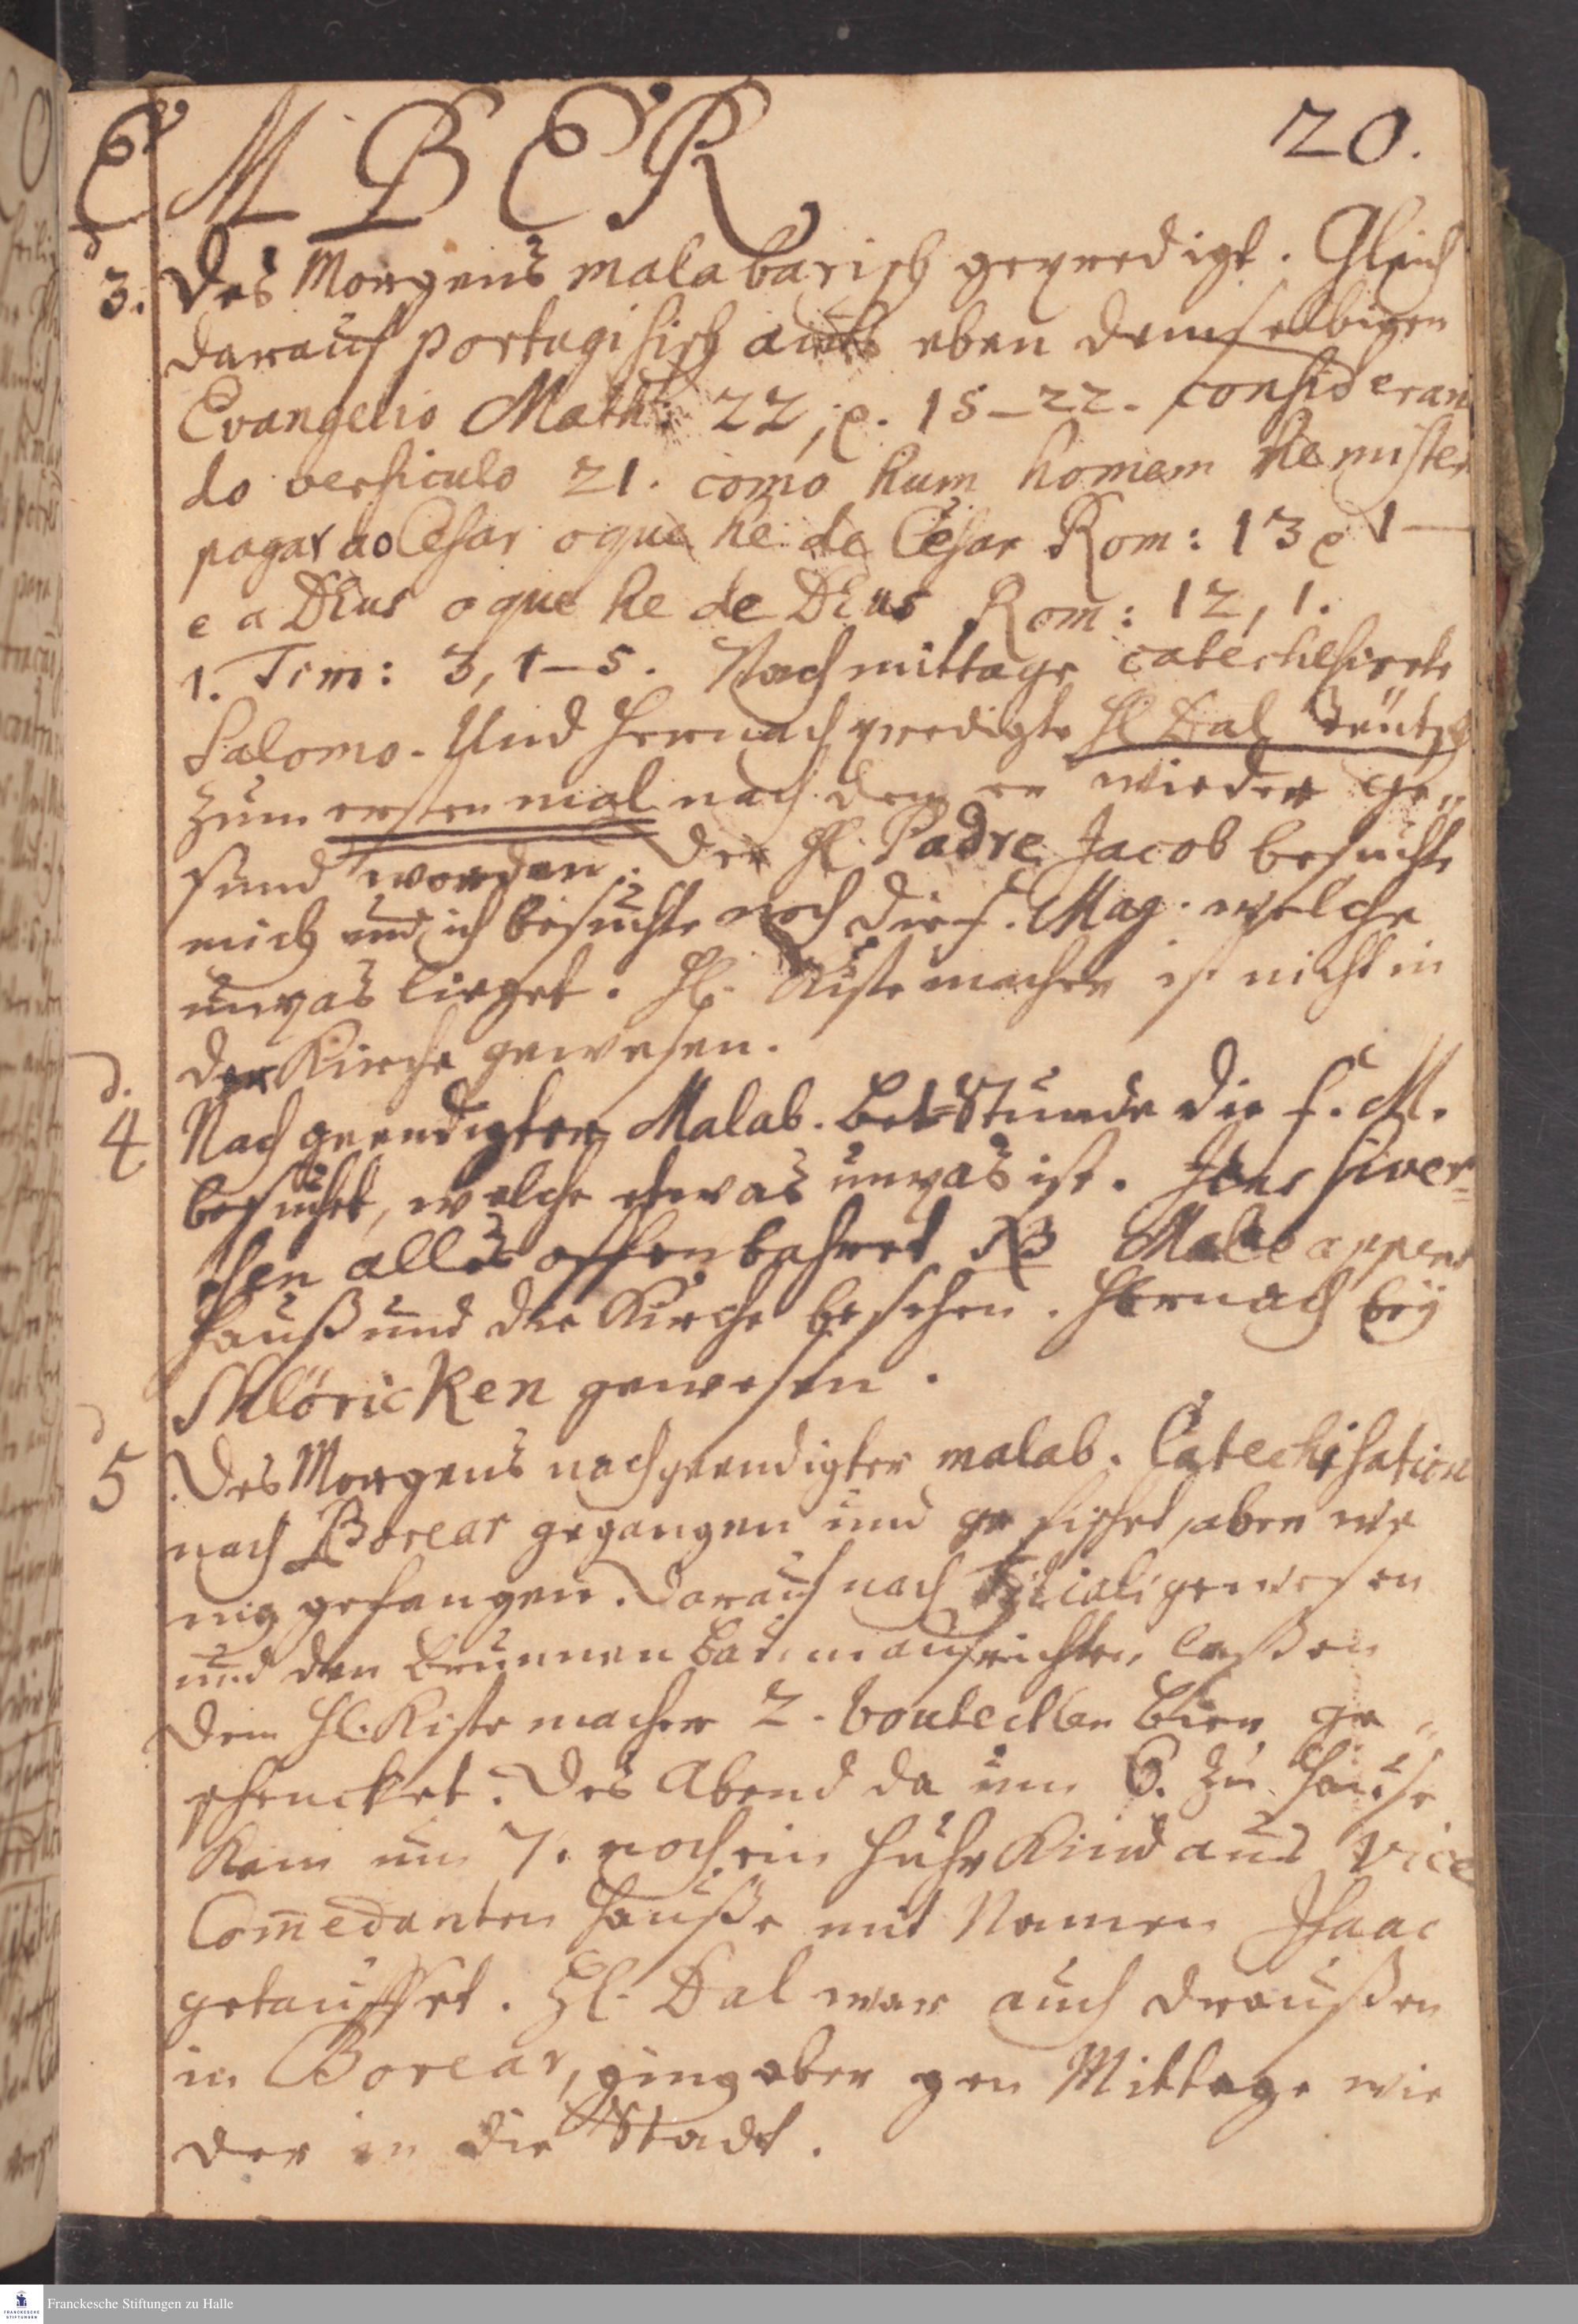 EMBER
20.
d 3. Des Morgens malabarisch geprediget. Gleich
darauf portugisisch aus eben demselbigen
Evangelio Math: 22, v. 15–22. consideran
do versiculo 21. como hum homem he mister
pagar ao Cesar o que he de Cesar Rom: 13 v 1—
e a DEus o que he de DEus Rom: 12, 1.
1. Tim: 3, 1–5. Nachmittage catechesirte
Salomo. Und hernach predigte H Dal Teütsch
zum ersten mal nach dem er wieder ge„
sund worden. Der H. Padre Jacob besuchte
mich und ich besuchte noch die f. Mag. welche
unpas lieget. H. Kistemacher ist nicht in
der Kirche gewesen.
d. 4 Nach geendigter Malab. Bet-Stunde die f. M.
besuchet, welche etwas unpas ist. Jens Siver=
sen alles offenbahret NB Maleappens
hauß und die Kirche besehen. Hernach bey
Mlöricken gewesen.
d 5 Des Morgens nach geendigter malab. Catechisation
nach Borear gegangen und gefischet, aber we
nig gefangen. Darauf nach gewesen
und den Brunnen Baum aufrichten laßen
Dem H. Kistemacher 2. bouteillen Bier ge„
schencket. Des Abend da um 6. zu Hause
kam um 7. noch ein Kind aus Vice
Com̅edanten Hauße mit Namen Isaac
getauffet. H. Dal war auch draußen
in Borear, ging aber gen Mittage wie
der in die Stadt.
Franckesche Stiftungen zu Halle
FRANCKESCHE
STIFTUNGEN